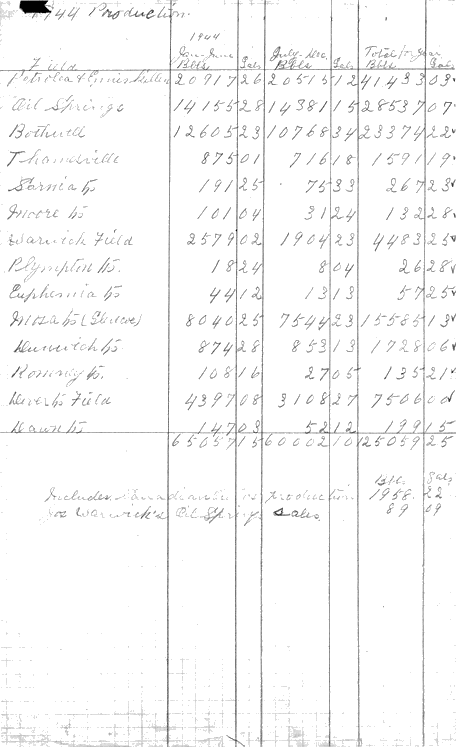 1944 Production.
1944
Jan-June July-Dec. Total for Year
Field Bbls Gals Bbls Gals Bbls Gals
Petrolea & Enniskillen 20917 26 20515 12 41433 03
Oil Springs 14155 28 14381 15 28537 07
Bothwell 12605 23 10768 34 23374 22
Thamesville 875 01 716 18 1591 19
Sarnia Tp 191 25 75 33 267 23
Moore Tp 101 04 31 24 132 28
Warwick Field 2579 02 1904 23 4483 25
Plympton Tp. 18 24 8 04 26 28
Euphemia Tp 44 12 13 13 57 25
Mosa Tp (Glencoe) 8040 25 7544 23 15585 13
Dunwich Tp 874 28 853 13 1728 06
Romney Tp. 108 16 27 05 135 21
Dover Tp Field 4397 08 3108 27 7506 00
Dawn Tp 147 03 52 12 199 15
65057 15 60002 10 125059 25
Bbl. Gals
Includes Canadian Oil Co's production 1958. 22
Jos Warwick's Oil Springs sales. 89 09